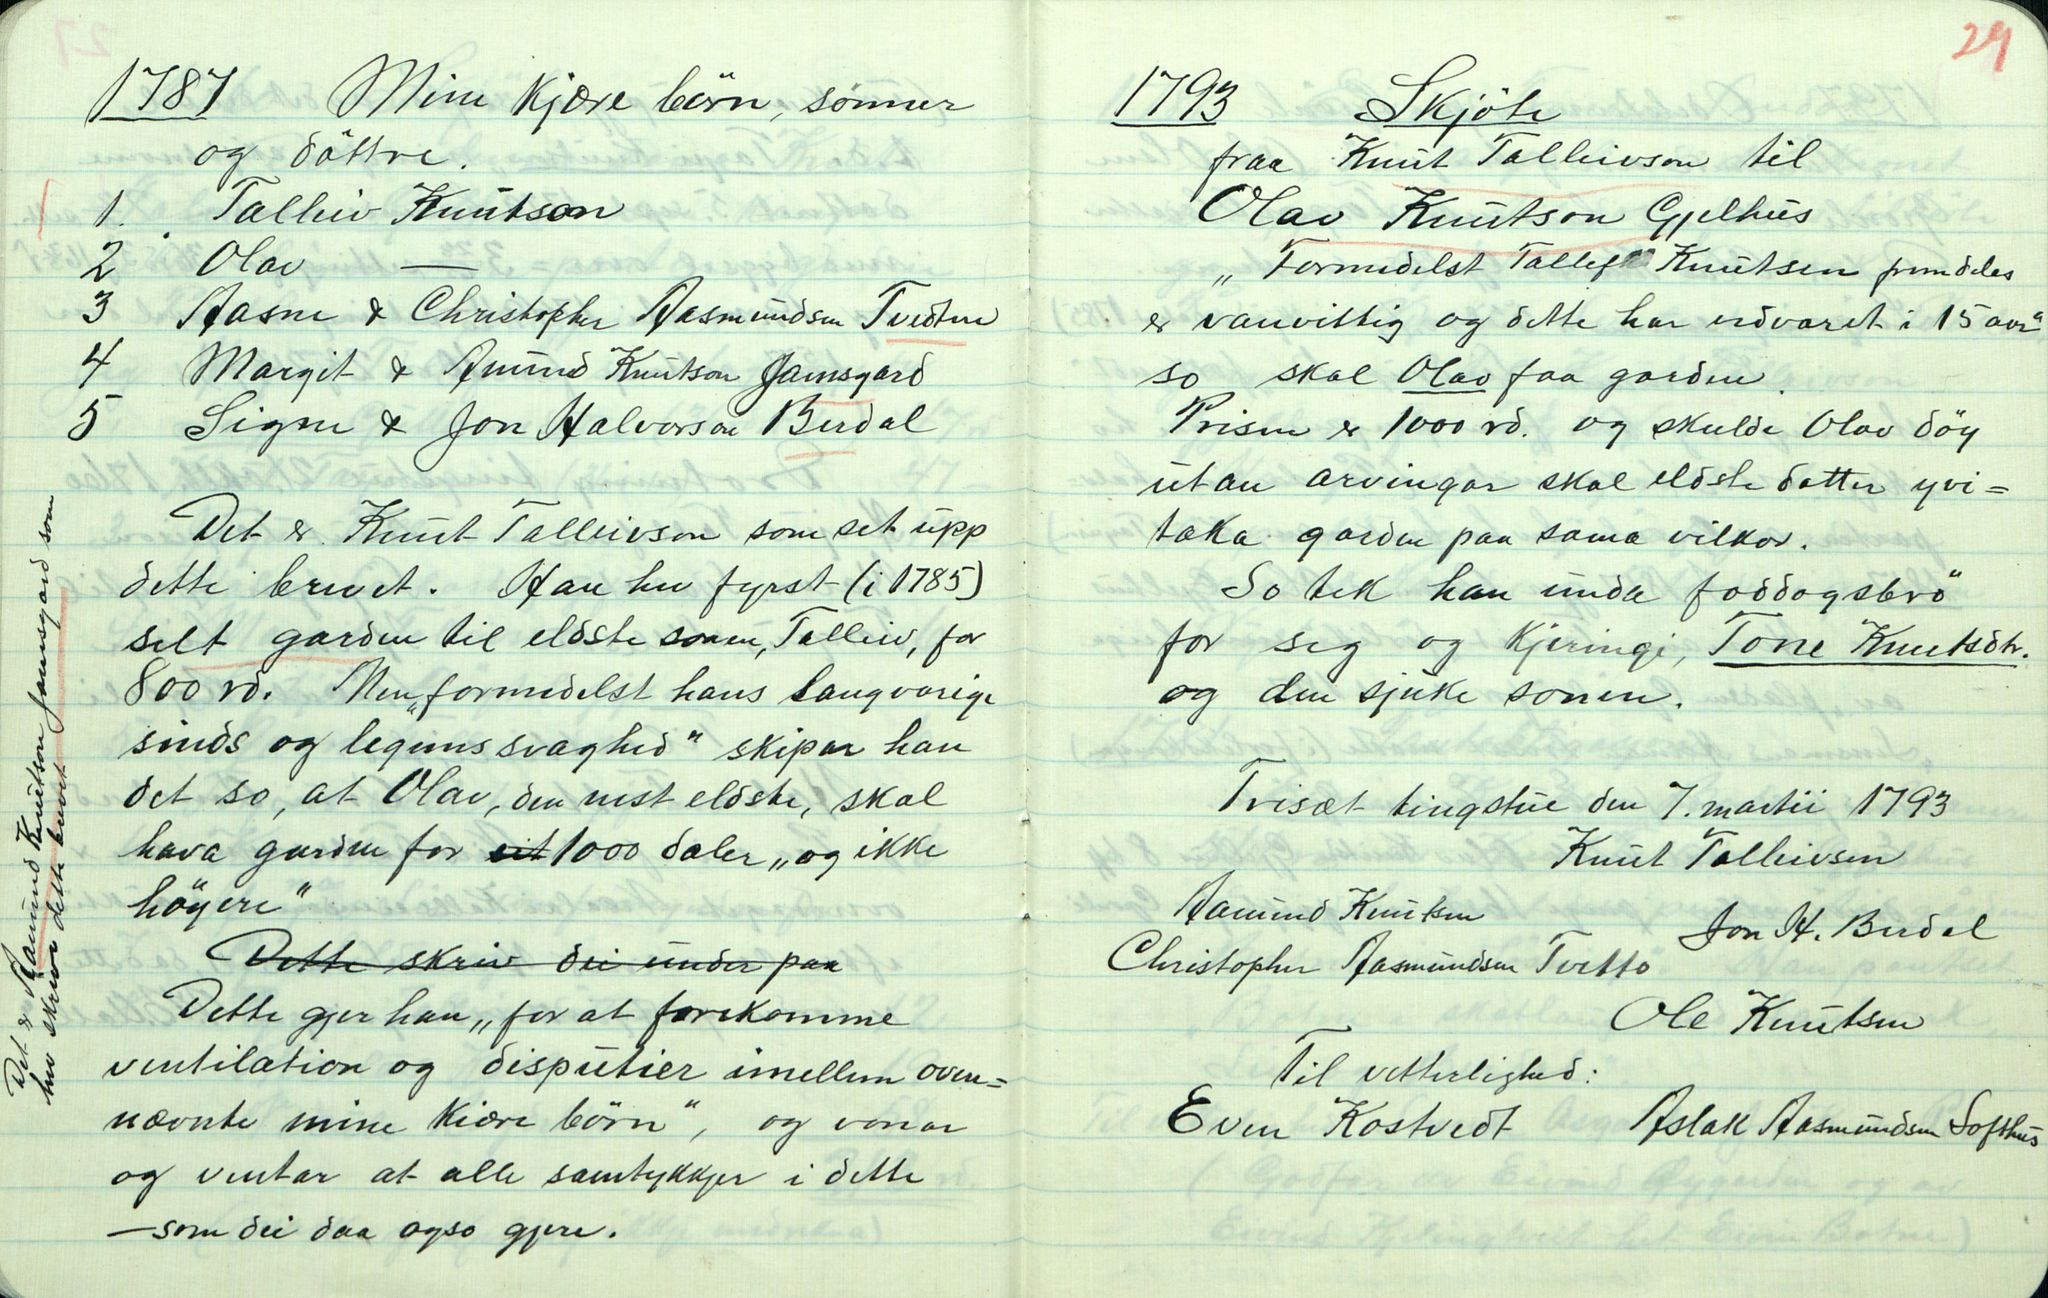 1787 Mine kjære börn, sönner
og döttre.
1. Talleiv Knutson
2 Olav —
3 Aasne & Christopher Aasmundsen Tvedtene
4 Margit & Amund Knutson Jamsgard
5 Signe & Jon Halvorson Berdal
Det er Knut Talleivson som set upp
dette brevet. Han hev fyrst (i 1785)
selt garden til eldste sonen, Talleiv, for
800 rd. Men „formedelst hans langvarige
sinds og legems svaghed" skipar han
det so, at Olav, den nest eldste, skal
hava garden for eit 1000 daler „og ikke
höyere"
Dette skriv dei under paa
Dette gjer han „for at forekomme
ventilation og disputier imellem oven=
nævnte mine kiære börn", og vonar
og ventar at alle samtykkjer i dette
—som dei daa ogso gjere.
Det er Aamund Knutson Jamsgard som
hev skrive dette brevet
29
1793 Skjöte
fraa Knut Talleivson til
Olav Knutson Gjelhus
„Formedelst Tallef Knutsen fremdeles
er vanvittig og dette har udvaret i 15 aar"
so skal Olav faa garden.
Prisen er 1000 rd. og skulde Olav döy
utan arvingar skal eldste dotter yvi=
taka garden paa sama vilkor.
So tek han undan foddogsbrö"
for seg og kjeringi, Tone Knutsdtr.
og den sjuke sonen.
Trisæt tingstue den 7. martii 1793
Knut Talleivsen
Aamund Knutsen
Jon H. Berdal
Christopher Aasmundsen Tvetto
Ole Knutsen
Til vetterlighed:
Even Kostvedt Aslak Aasmundsen Softhus